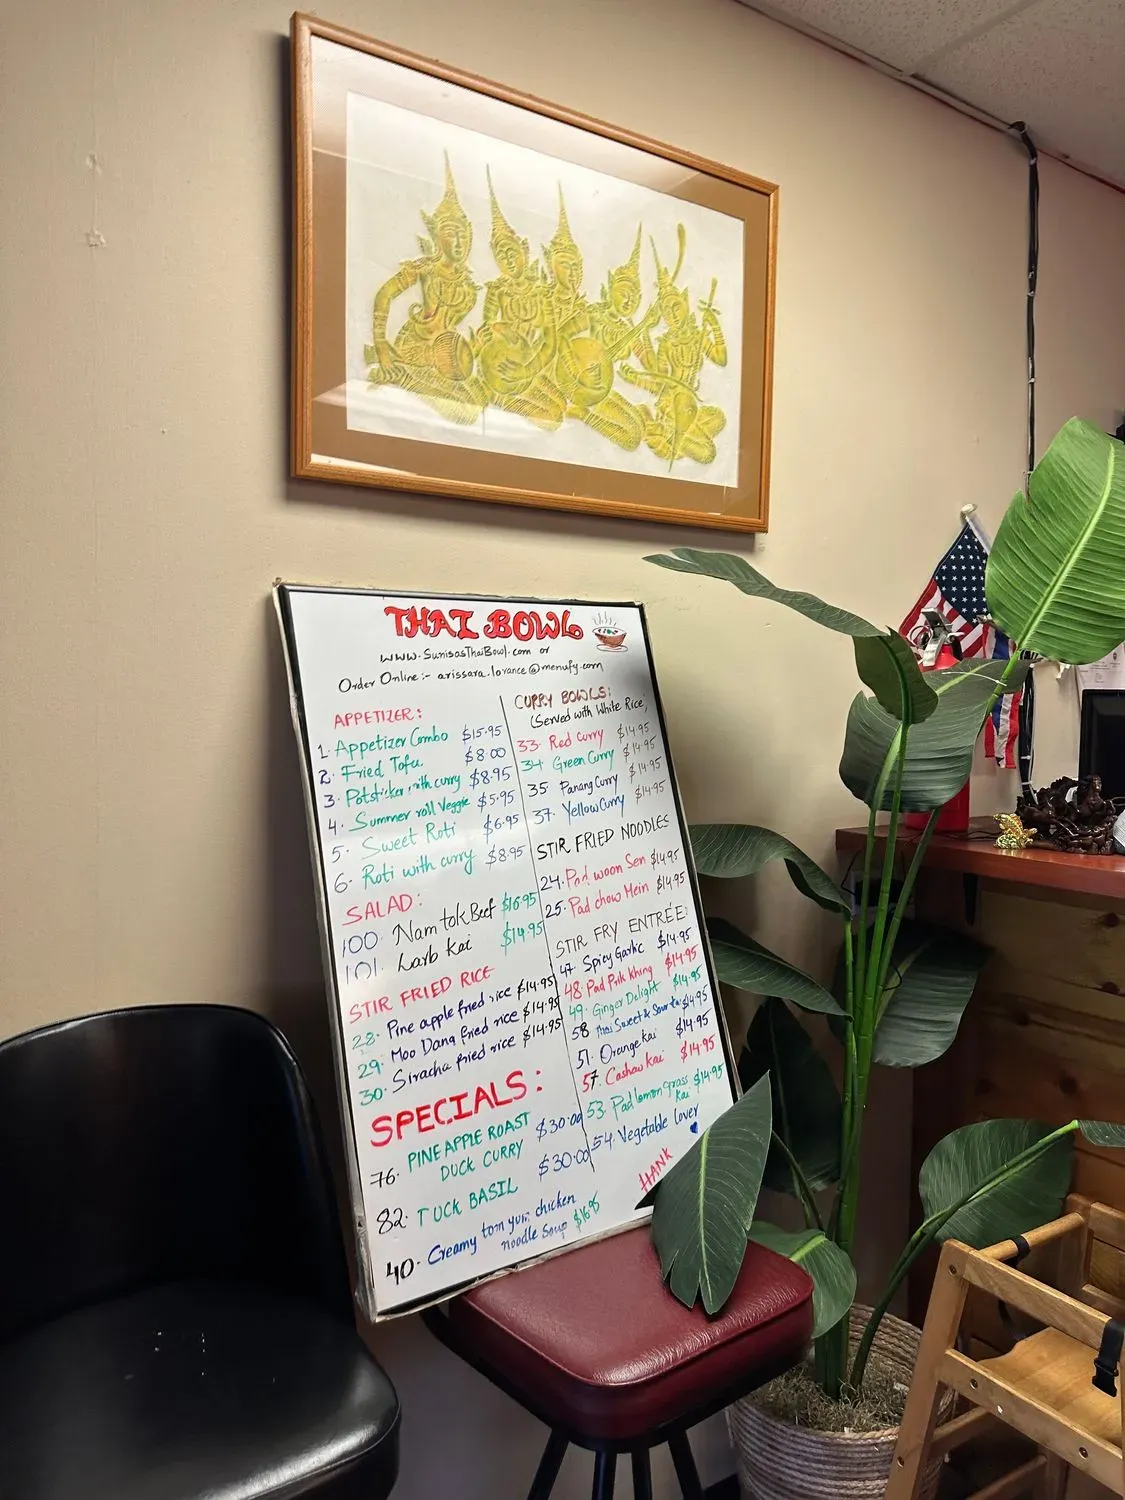 THAI BOWL
www.SunisasThaiBowl.com or
Order Online:- arissara.lorance@menufy.com
APPETIZER:
1. Appetizer Combo $15.95
2. Fried Tofu $8.00
3. Potsticker with curry $8.95
4. Summer roll Veggie $5.95
5. Sweet Roti $6.95
6. Roti with curry $8.95
SALAD:
100. Nam tok Beef $16.95
101. Larb Kai $14.95
STIR FRIED RICE
28. Pine apple fried rice $14.95
29. Moo Dang fried rice $14.95
30. Siracha fried rice $14.95
SPECIALS:
76. PINEAPPLE ROAST
DUCK CURRY $30.00
82. TUCK BASIL $30.00
40. Creamy tom yum chicken
noodle soup
CURRY BOWLS:
(Served with White Rice)
33. Red Curry $14.95
34. Green Curry $14.95
35 Panang Curry $14.95
37. Yellow Curry $14.95
STIR FRIED NOODLES
24. Pad woon Sen $14.95
25. Pad chow Mein $14.95
STIR FRY ENTRÉE:
47. Spicy Garlic $14.95
48. Pad Prik Khing $14.95
49. Ginger Delight $14.95
58 Thai Sweet & Sour $14.95
51. Orange Kai $14.95
57. Cashew Kai $14.95
53. Pad lemon grass $14.95
Kai
54. Vegetable Lover
HANK